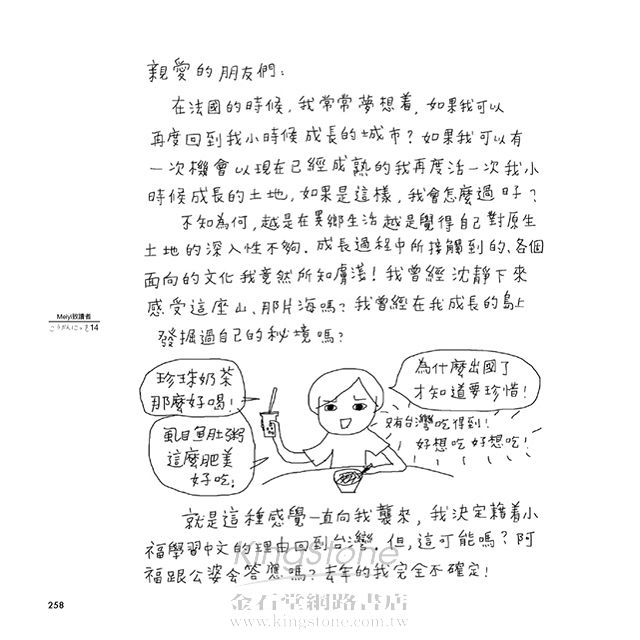 親愛的朋友們：
在法國的時候，我常常夢想着，如果我可以
再度回到我小時候成長的城市？如果我可以有
一次機會以現在已經成熟的我再度活一次我小
時候成長的土地，如果是這樣，我會怎麼過日子？
不知為何，越是在異鄉生活越是覺得自己對原生
土地的深入性不夠．成長過程中所接觸到的、各個
面向的文化我竟然所知膚淺！我曾經沈靜下來
感受這座山、那片海嗎？我曾經在我成長的島上
發掘過自己的秘境嗎？
Meiyi致讀者
14
珍珠奶茶
那麼好喝！
虱目魚肚粥
這麼肥美
好吃！
為什麼出國了
才知道要珍惜！
只有台灣吃得到！
好想吃好想吃！
就是這種感覺一直向我襲來，我決定藉着小
福學習中文的理由回到台灣．但，這可能嗎？阿
福跟公婆會答應嗎？去年的我完全不確定！
KingStone
金石堂網路書店
www.kingstone.com.tw
258